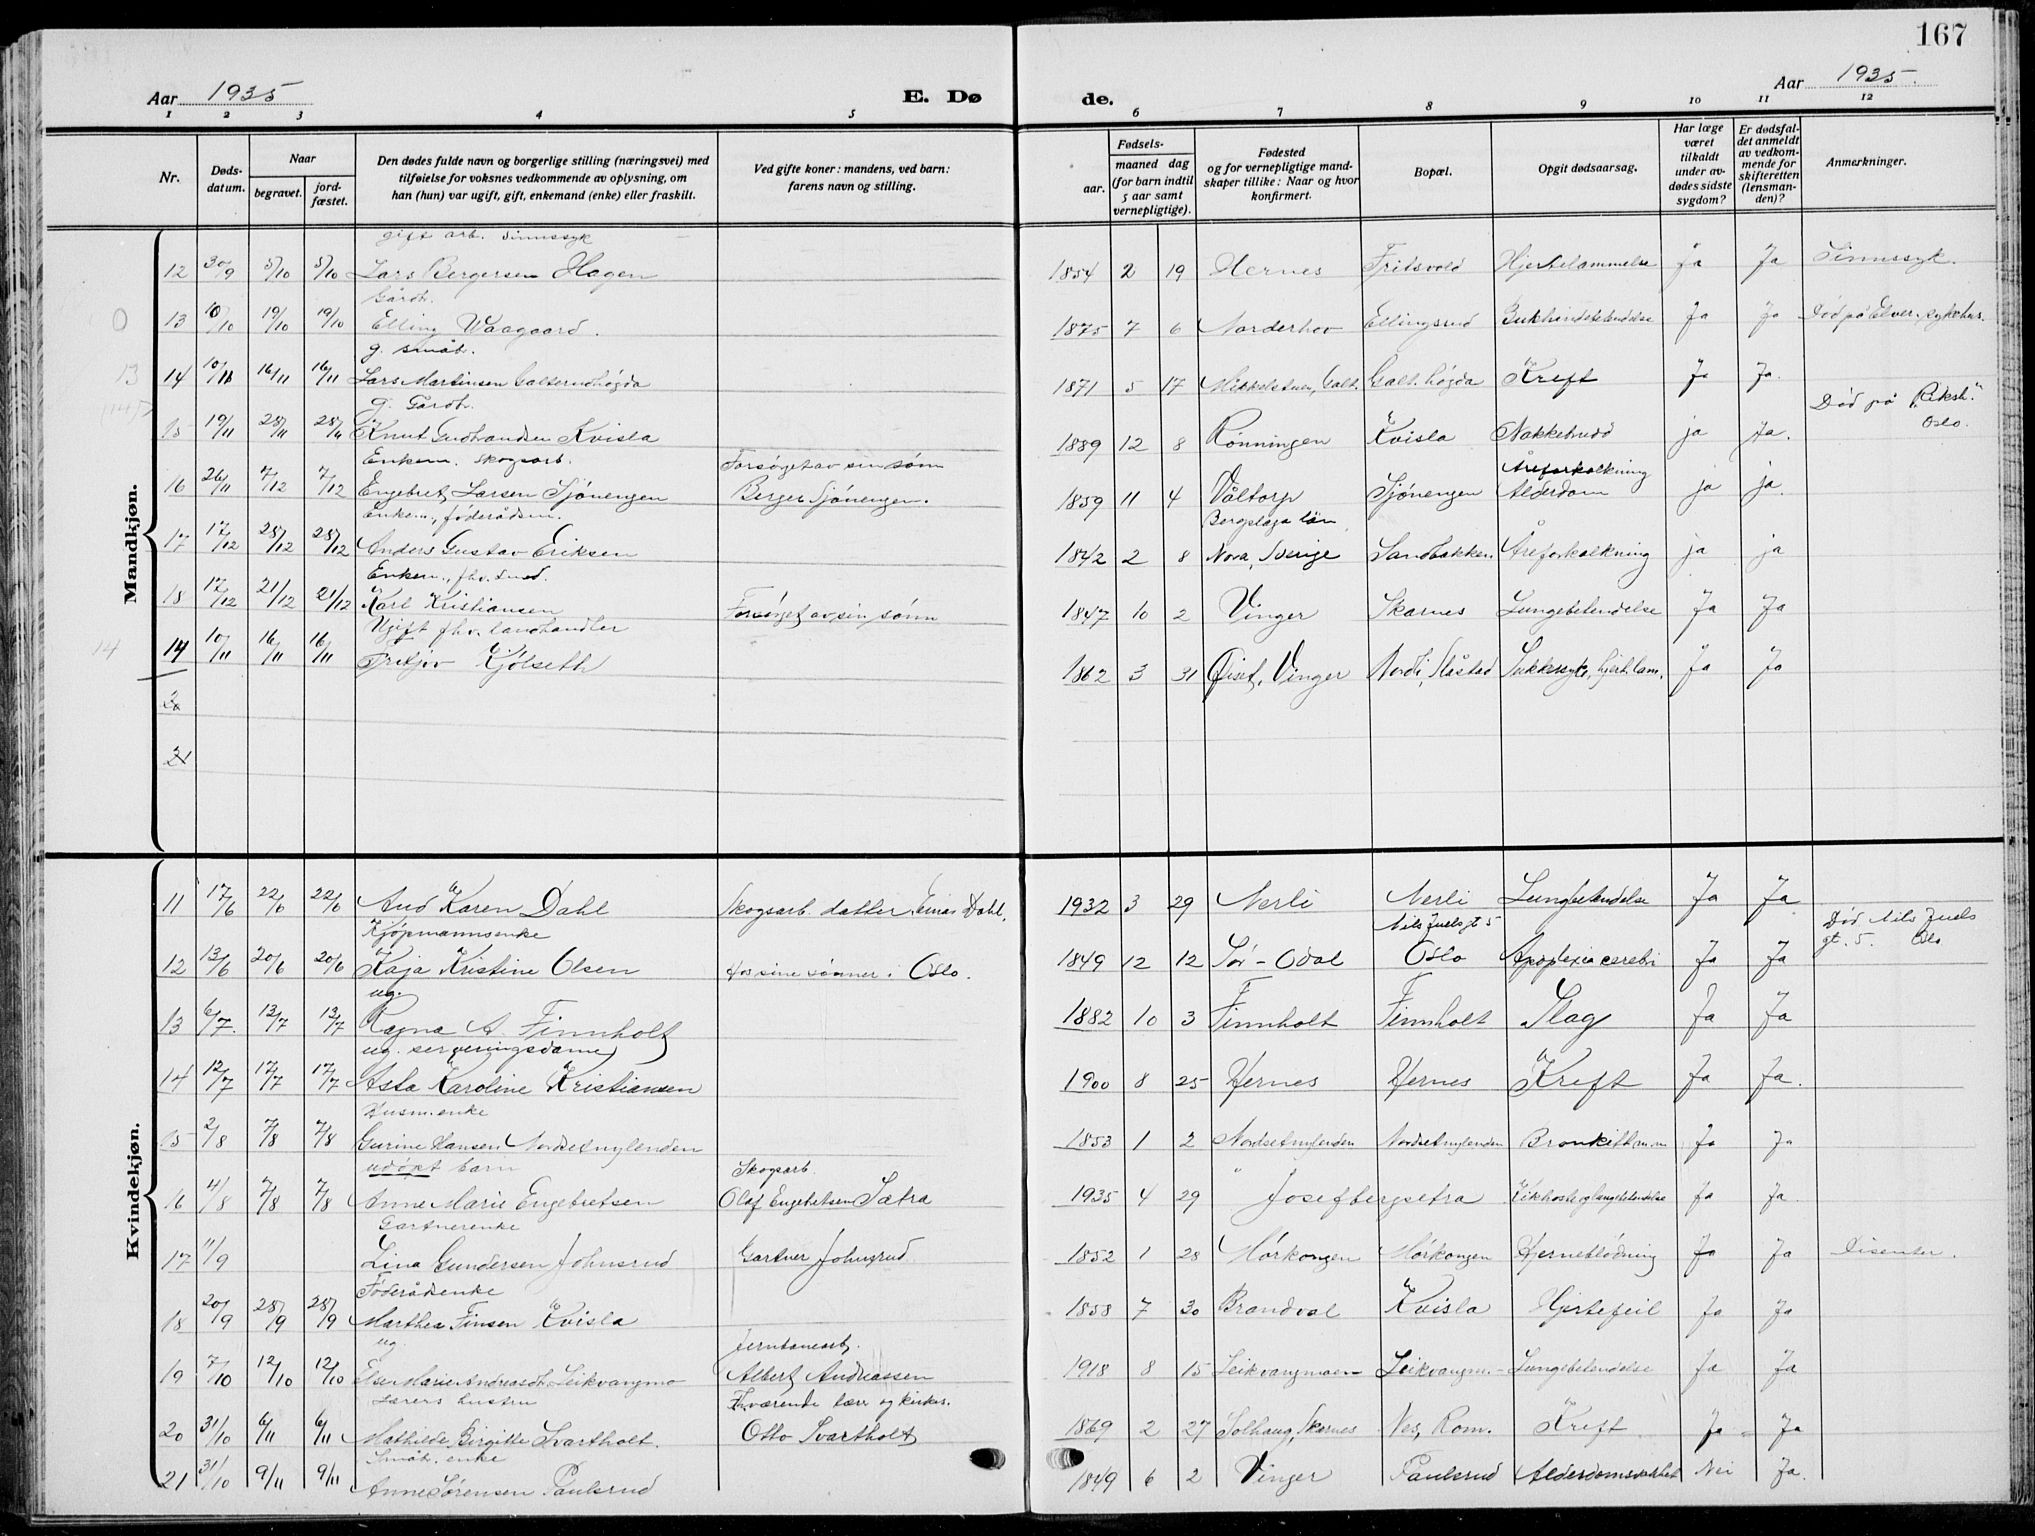 167
Aar 1935 E. Dø de. Aar 1935.
1 2 3 4 5 6 7 8 9 10 11 12
Nr. Døds-datum. Naar begravet. jord-fæstet. Den dødes fulde navn og borgerlige stilling (næringsvei) med tilføielse for voksnes vedkommende av oplysning, om han (hun) var ugift, gift, enkemand (enke) eller fraskilt. Ved gifte koner: mandens, ved barn: farens navn og stilling. Fødsels- aar. maaned dag (for barn indtil 5 aar samt vernepligtige). Fødested og for vernepligtige mand-skaper tillike: Naar og hvor konfirmert. Bopæl. Opgit dødsaarsag. Har læge været tilkaldt under av-dødes sidste sygdom? Er dødsfal-det anmeldt av vedkom-mende for skifteretten (lensman-den)? Anmerkninger.
Mandkjøn.
gift arb. Sinnssyk
12 30/9 5/10 5/10 Lars Bergersen Hagen 1854 2 19 Hernes Fritsvold Hjertelammelse Ja Ja Sinnssyk.
Gårdbr.
0 13 10/10 19/10 19/10 Elling Waagaard. 1875 7 6 Norderhov Ellingsrud Bukhindebetendelse Ja Ja Død på Elver. sykehus.
g. småbr.
13 14 10/11 16/11 16/11 Lars Martinsen Galterudhøgda 1871 5 17 Mikkelstuen, Galt. Galt. høgda Kreft Ja Ja.
g. Gårdbr.
15 19/11 28/11 28/11 Knut Gudbrandsen Kvisla 1889 12 8 Rønningen Kvisla Nakkebrudd ja Ja. Død på "Riksh." Oslo.
Enkem. skogsarb. Forsørget av sin sønn Åreforkalkning
16 26/11 7/12 7/12 Engebret Larsen Sjønengen Berger Sjønengen. 1859 11 4 Våltorp Sjønengen Alderdom ja ja.
Enkem., føderådsm. Bergslaga län
17 17/12 28/12 28/12 Anders Gustav Eriksen 1842 2 8 Nora, Sverige Sandbakken. Åreforkalkning ja ja
Enkem., fhv. smed.
18 17/12 21/12 21/12 Karl Kristiansen Forsørget av sin sønn 1847 10 2 Vinger Skarnes Lungebetendelse Ja Ja
Ugift fhv. landhandler
14 14 10/11 16/11 16/11 Fritjov Kjølseth 1862 3 31 Øiset, Vinger Nordli, Slåstad Sukkersyke, hjert.lam. Ja Ja
21
Kvindekjøn.
11 17/6 22/6 22/6 Aud Karen Dahl Skogsarb. datter, Einar Dahl. 1932 3 29 Nerli Nerli Lungbetendelse Ja Ja
Kjøpmannsenke Nils Juels gt 5 Død Nils Juels
12 13/6 20/6 20/6 Kaja Kristine Olsen Hos sine sønner i Oslo. 1849 12 12 Sør-Odal Oslo Apoplexia cerebri Ja Ja gt. 5. Oslo
ug.
13 6/7. 13/7 13/7 Ragna A. Finnholt 1882 10 3 Finnholt Finnholt Slag Ja Ja
ug. serveringsdame
14 12/7 17/7 17/7 Asta Karoline Kristiansen 1900 8 25 Hernes Hernes Kreft Ja Ja.
Husm.enke
15 2/8 7/8 7/8 Gurine Hansen Nordsetnylenden 1853 1 2 Nordsetnylenden Nordsetnylenden Bronkitt m.m Ja Ja
udøpt barn Skogsarb.
16 4/8 7/8 7/8 Anne Marie Engebretsen Olaf Engebretsen Sætra 1935 4 29 " Josefbergsetra Kikhoste og lungebetendelse Ja Ja.
Gartnerenke
17 11/9 Lina Gundersen Johnsrud Gartner Johnsrud 1852 1 28 Mørkongen Mørkongen Hjerneblødning Ja Ja Disenter.
Føderådsenke
18 20/9 28/9 28/9 Marthea Finsen Kvisla 1858 7 30 Brandval Kvisla Hjertefeil Ja Ja
ug. Jernbanearb.
19 7/10 12/10 12/10 Else Marie Andreasdt. Leikvangmo Albert Andreassen 1918 8 15 Leikvangmoen Leikvangm. Lungebetendelse Ja Ja
Lærers hustru Fhværende lærer og kirkes.
20 31/10 6/11 6/11 Mathilde Birgitte Svartholt. Otto Svartholt 1869 2 27 Solhaug, Skarnes Nes, Rom. Kreft Ja Ja
Småbr. enke
21 31/10 9/11 9/11 Anne Sørensen Paulsrud 1849 6 2 Vinger Paulsrud Alderdomssvakhet Nei Ja.